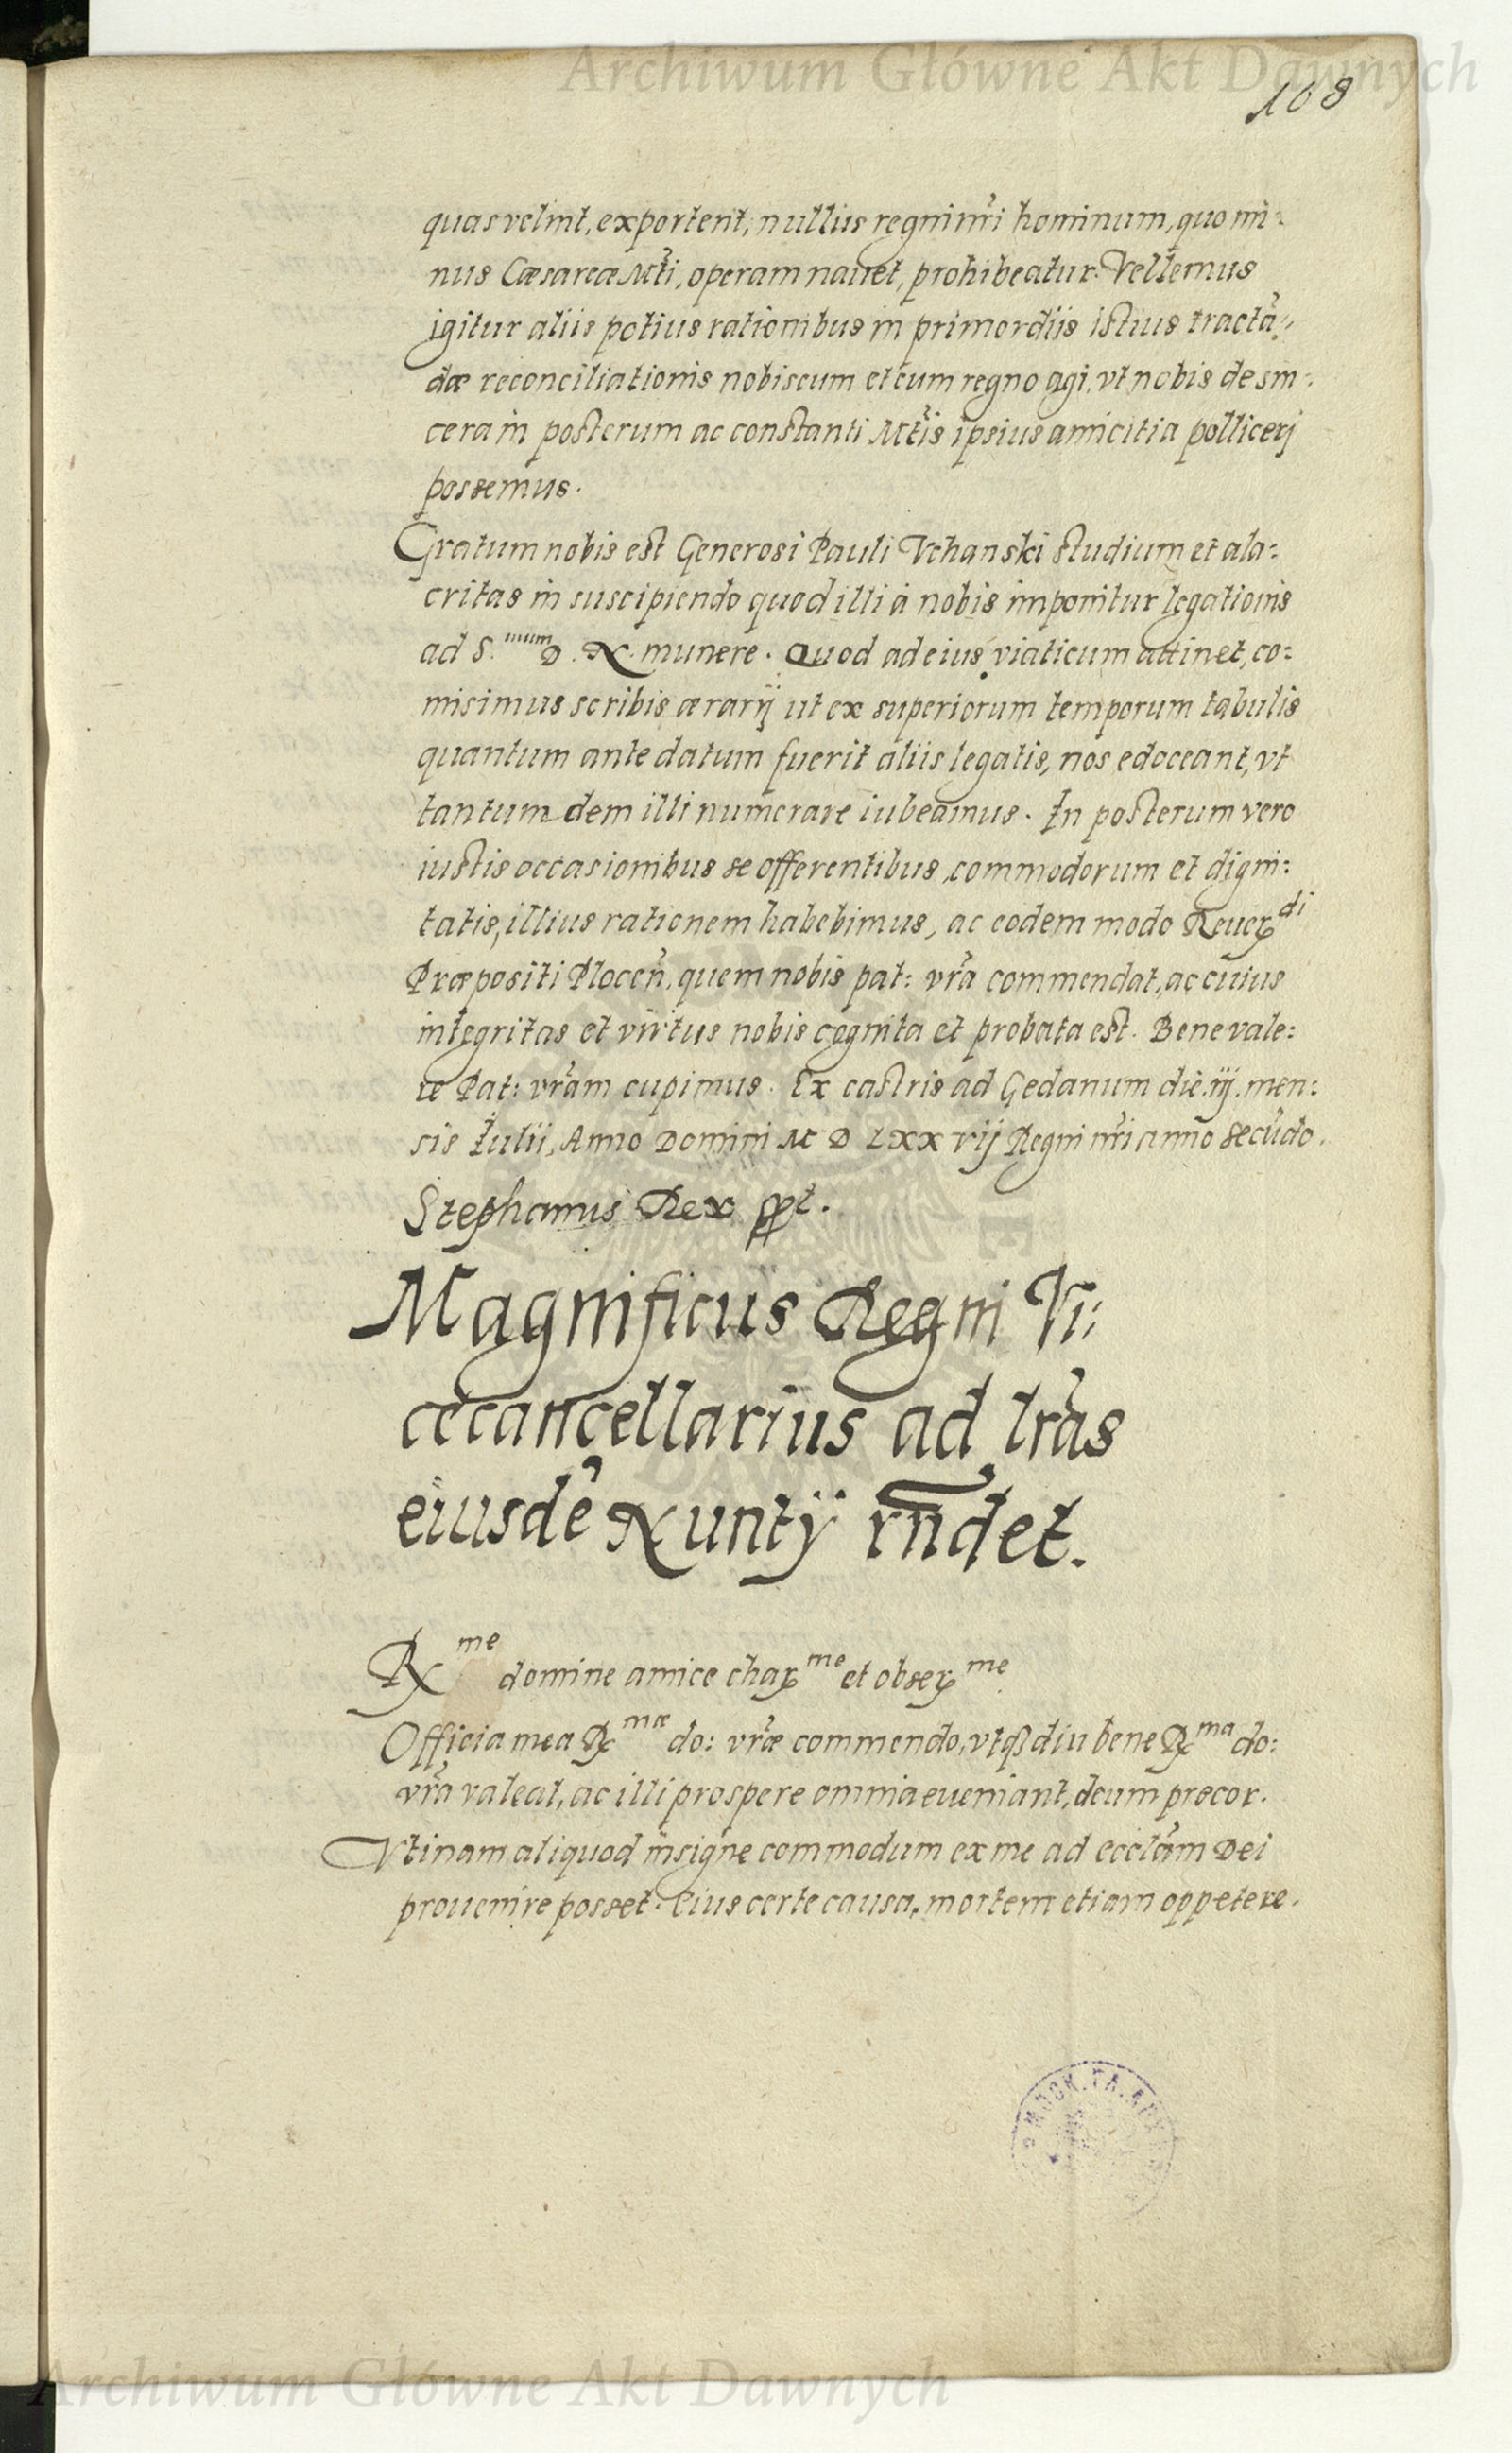 Archiwum Główne Akt Dawnych
108
quas velint, exportent, nullius regni nr̃i hominum, quo mi:
nus Cæsareæ Mt̃i, operam nauet, prohibeatur. Vellemus
igitur aliis potius rationibus in primordiis istius tractã:
dæ reconciliationis nobiscum et cum regno agi, vt nobis de sin:
cera in posterum ac constanti Mt̃is ipsius amicitia pollicerj
possemus.
Gratum nobis est Generosi Pauli Vchanski studium et ala:
critas in suscipiendo quod illi à nobis imponitur legationis
ad S.mum D. N. munere. Quod ad eius viaticum attinet, co:
misimus scribis ærarij ut ex superiorum temporum tabulis
quantum ante datum fuerit aliis legatis, nos edoceant, vt
tantum dem illi numerare iubeamus. In posterum vero
iustis occasionibus se offerentibus, commodorum et digni:
tatis, illius rationem habebimus, ac eodem modo Reuer di
Præpositi Plocen̄, quem nobis pat: vr̃a commendat, ac cuius
integritas et virtus nobis cognita et probata est. Bene vale:
re Pat: vr̃am cupimus. Ex castris ad Gedanum die. iij. men:
sis Iulii, Anno Domini M D LXX vij Regni nr̃i anno secũdo.
Stephanus Rex ppt.
Magnificus Regni Vi:
cecancellarius ad lr̃as
eiusdẽ Nuntij rñdet.
Rx me domine amice char me et obser me
Officia mea Rx mæ do: vr̃æ commendo, vtq diu bene Rx ma do:
vr̃a valeat, ac illi prospere omnia eueniant, deum precor.
Vtinam aliquod insigne commodum ex me ad ecclãm Dei
prouenire posset. Eius certe causa, mortem etiam oppetere.
Archiwum Główne Akt Dawnych